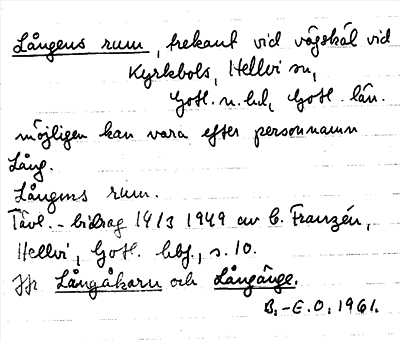 Långens rum, trekant vid vägskäl vid
Kyrkbols, Hellvi sn,
Gotl. n. hd, Gotl. län.
möjligen kan vara efter personnamn
Lång.
Långens rum.
Tävl.-bidrag 14/3 1949 av C. Franzén,
Hellvi, Gotl. hbg., s. 10.
Jfr Långåkarn och Långänge.
B.-E.O. 1961.